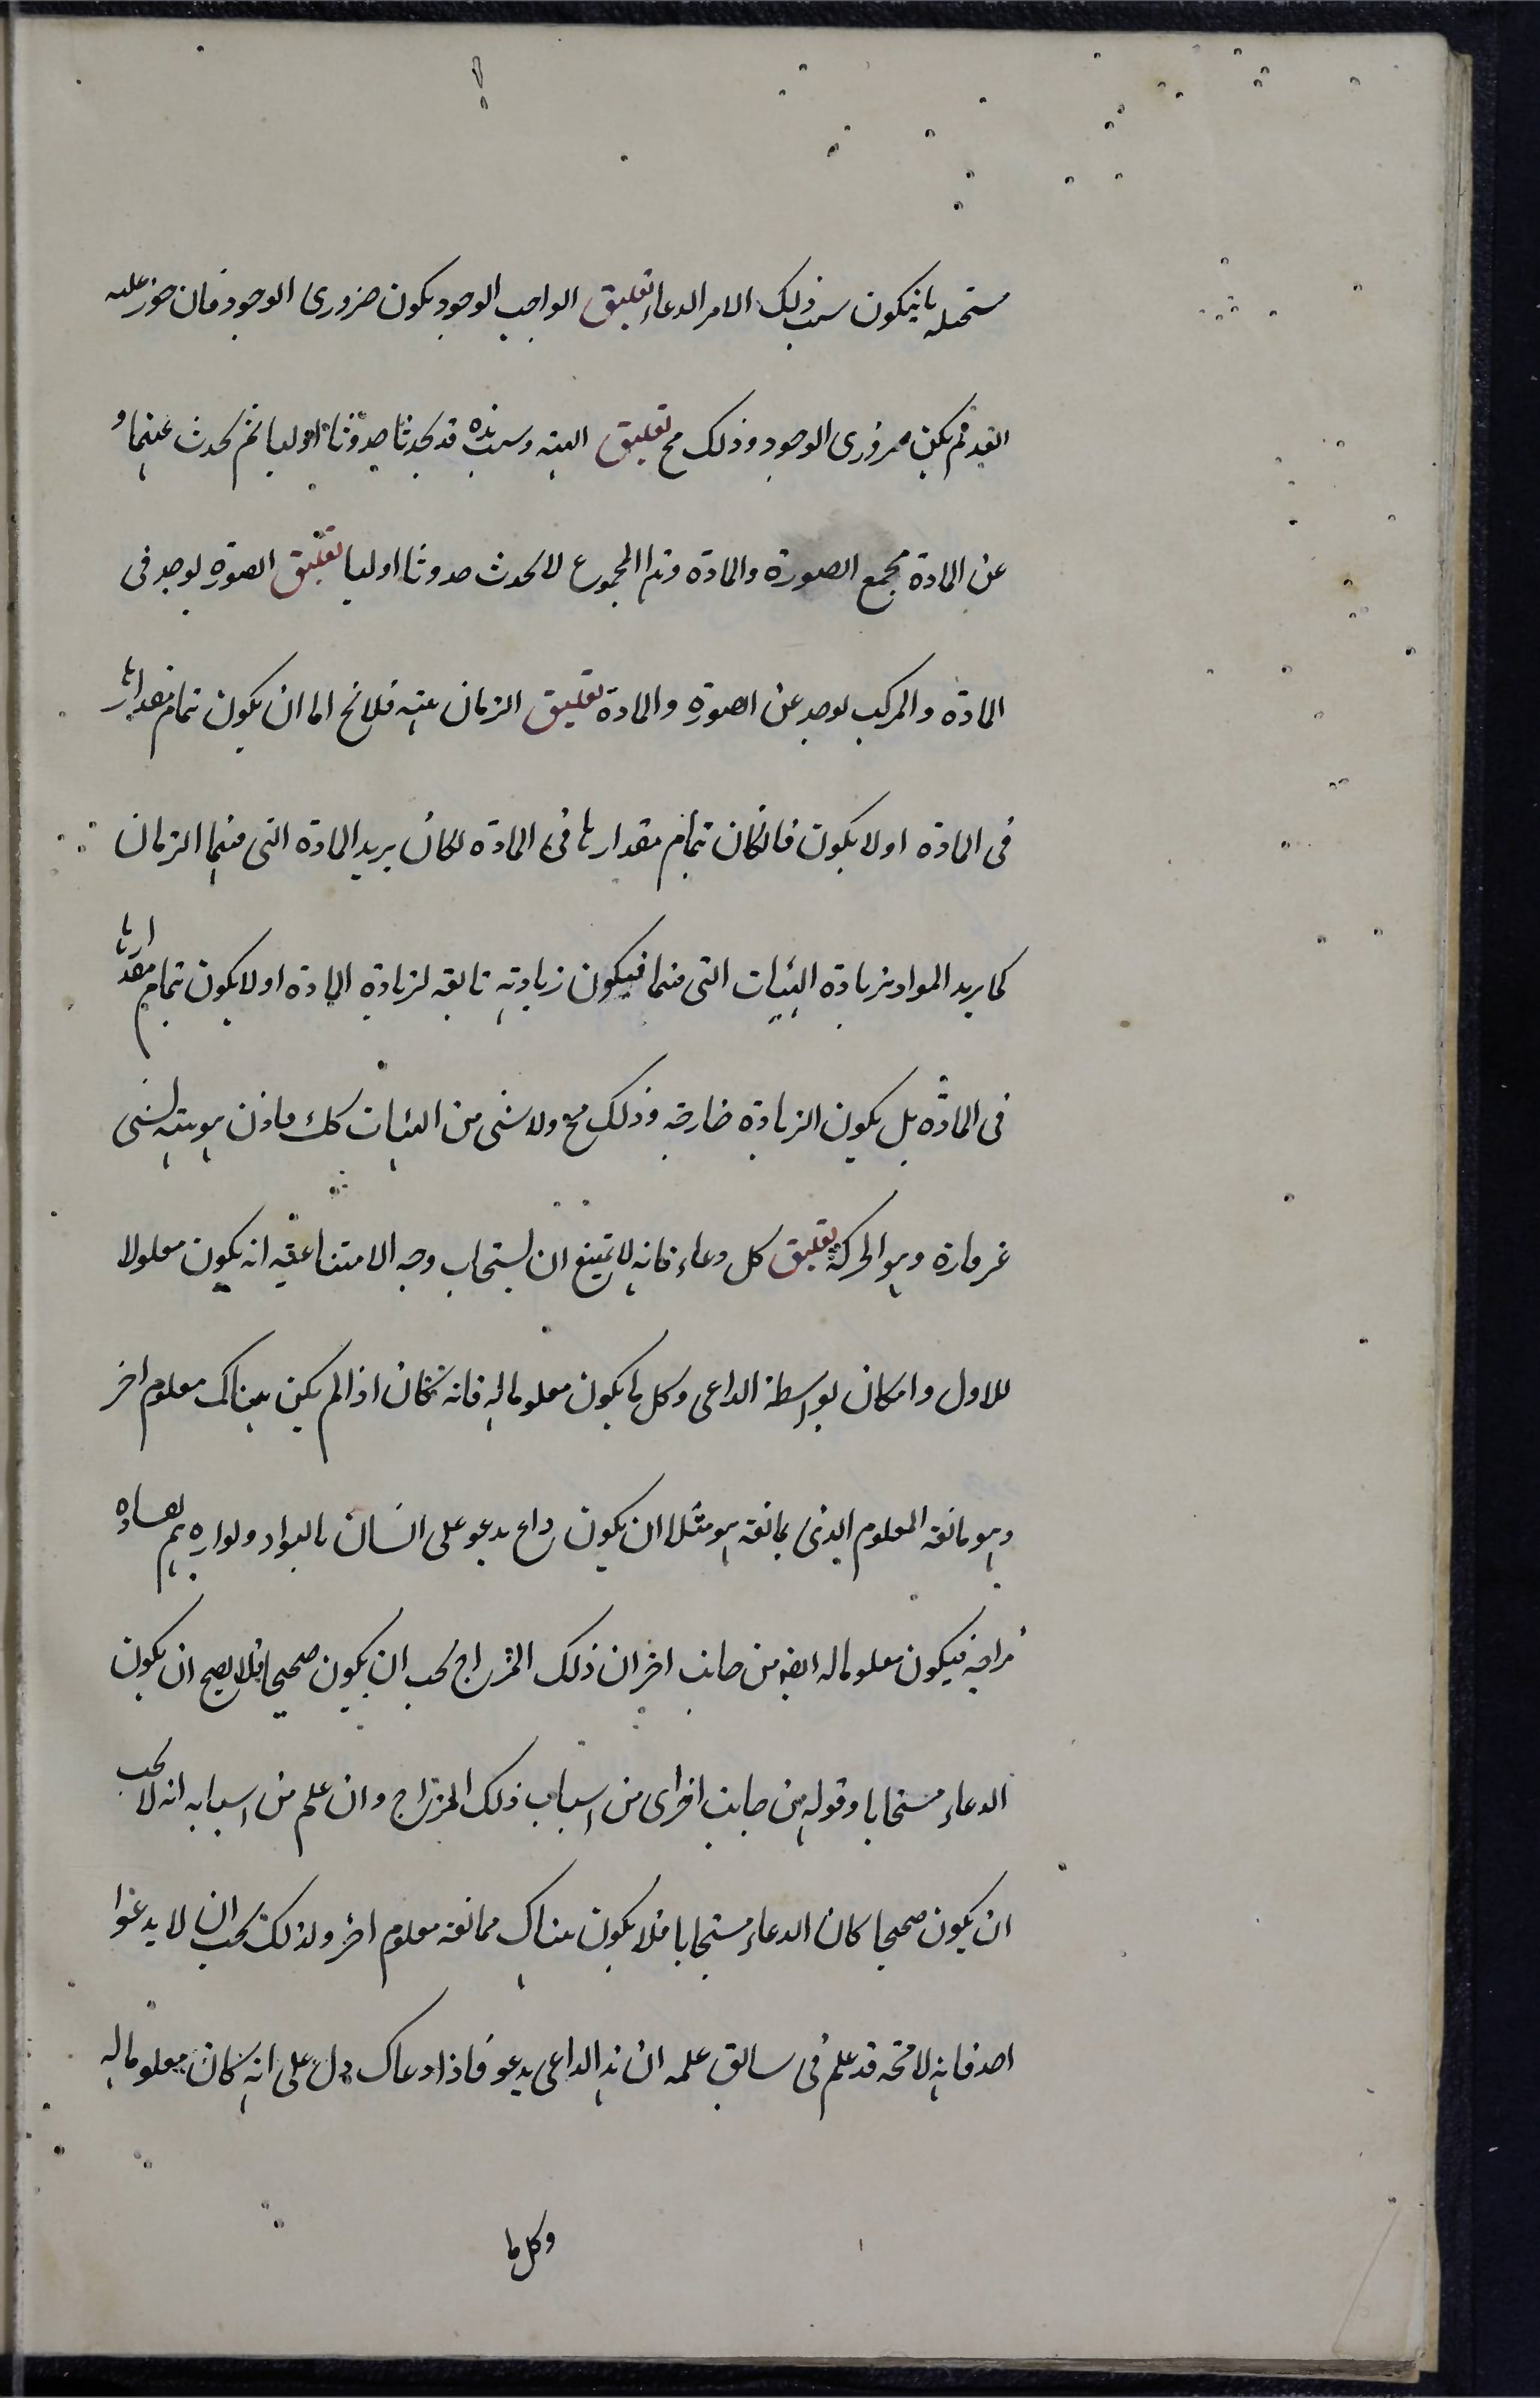 مستحيله بانيكون سبب ذلك الامر الدعاء تعليق الواجب الوجود يكون ضرورى الوجود فان جوز عليه
العدم لم يكن ضرورى الوجود وذلك مح تعليق الهيه وسبب هذه قد يحدثا حدوثا اوليا ثم يحدث عنهما و
عن المادة مجمع الصورة والمادة وهذا المجموع لا يحدث حدوثا اوليا تعليق الصورة يوجد فى
المادة والمركب يوجد عن الصورة والمادة تعليق الزمان هيئة فلا يخ اما ان يكون تمام مقدارها
فى المادة او لا يكون فان كان تمام مقدارها فى المادة لكان يزيد المادة التى فيها الزمان
كما يزيد المواد بزيادة الهيئات التى فيها فيكون زيادته تابعه لزيادة المادة او لا يكون تمام مقدارها
فى المادة بل يكون الزيادة خارجه وذلك مح ولا شى من الهيئات كك فاذن هو هيئة لشى
غير قارة وهو الحركة تعليق كل دعاء فانه لا يمتنع ان يستجاب وجه الامتناعيه انه يكون معلولا
للاول وامكان بواسطة الداعى وكل ما يكون معلوما له فانه كان اذا لم يكن هناك معلوم اخر
وهو مانعه المعلوم الذى يمانعه هو مثلا ان يكون داع يدعو على انسان بالبوار وبواره يتم بفساده
مزاجه فيكون معلوما له ايضه من جانب اخر ان ذلك المزاج يجب ان يكون صحيحا فلا يصح ان يكون
الدعاء مستجابا وقوله من جانب اخر اى من اسباب ذلك المزاج وان علم من اسبابه انه لا يجب
ان يكون صحيحا كان الدعاء مستجابا فلا يكون هناك ممانعه معلوم اخر ولذلك يجب ان لا يدعوا
احد فانه لا محه قد علم فى سابق علمه ان هذا الداعى يدعو فاذا دعاك دل على انه كان معلوما له
وكل ما